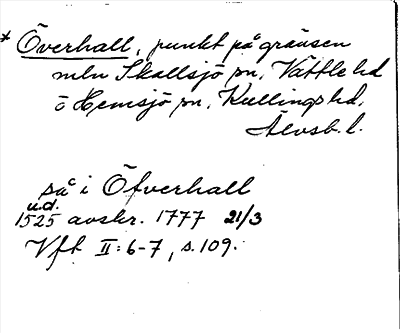 * Överhall, punkt på gränsen
mln Skallsjö sn, Vättle hd
o Hemsjö sn, Kullings hd,
Älvsb. l.
så i Öfverhall
u.d.
1525 avskr. 1777 21/3
Vft II:6-7, s. 109.